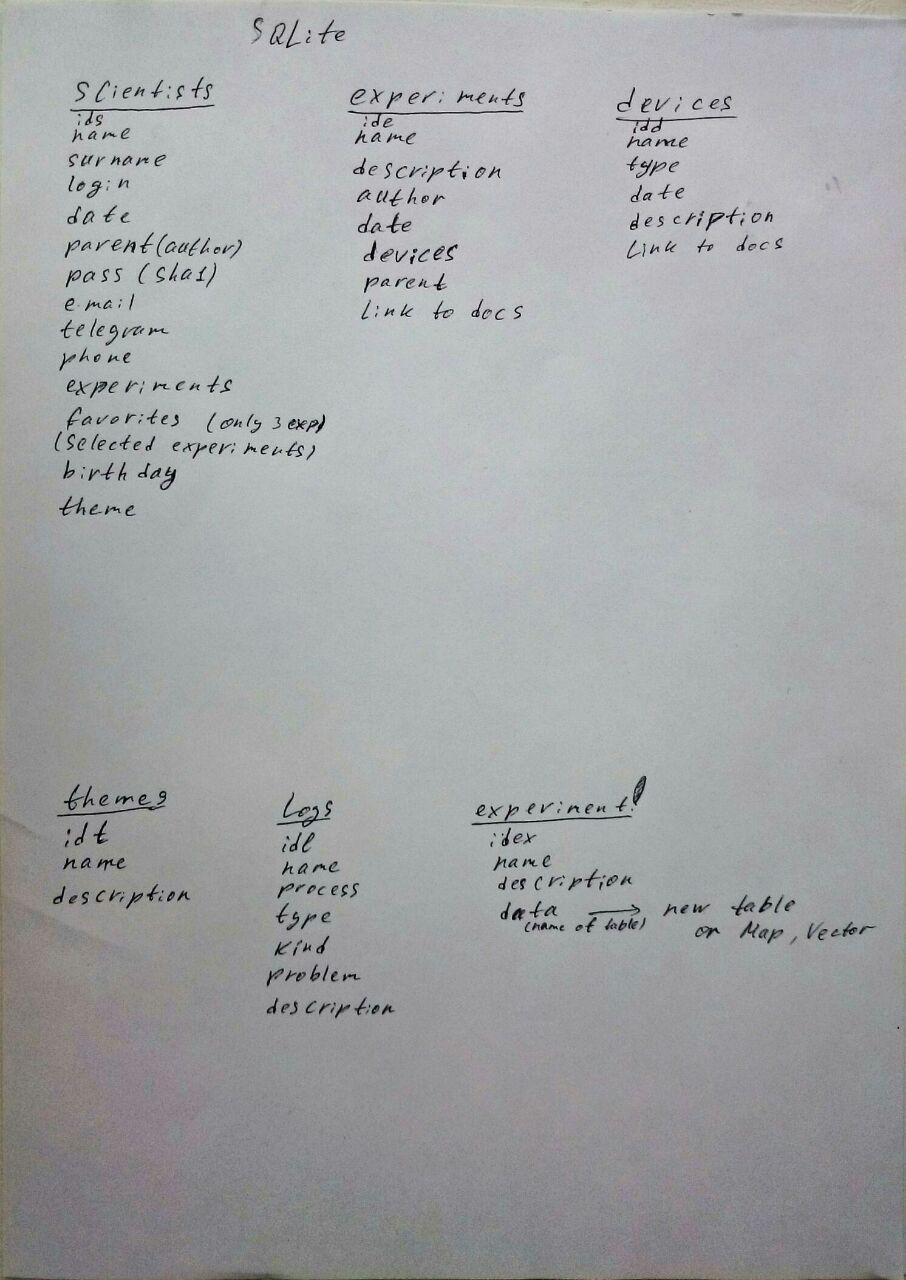 SQLite
scientists
ids
name
surname
login
date
parent(author)
pass (sha1)
e.mail
telegram
phone
experiments
favorites (only 3 exp)
(selected experiments)
birthday
theme
experiments
ide
name
description
author
date
devices
parent
link to docs
devices
idd
name
type
date
description
link to docs
themes
idt
name
description
Logs
idl
name
process
type
kind
problem
description
experiment!
idex
name
description
data → new table
(name of table) or Map, Vector